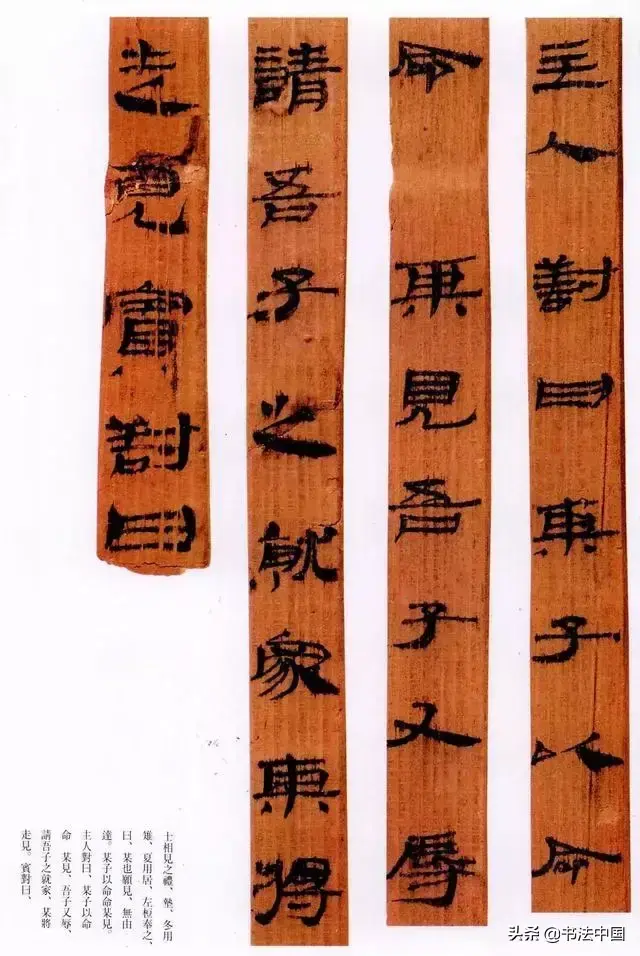 主人對曰某子以命
命某見吾子又辱
請吾子之就家某將
走見賓對曰
士相見之禮、墊、冬用
雉、夏用居、左梪奉之、
曰、某也願見、無由
達。某子以命命某見。
主人對曰、某子以命
命 某見、吾子又辱、
請吾子之就家、某將
走見。賓對曰、
头条 @书法中国